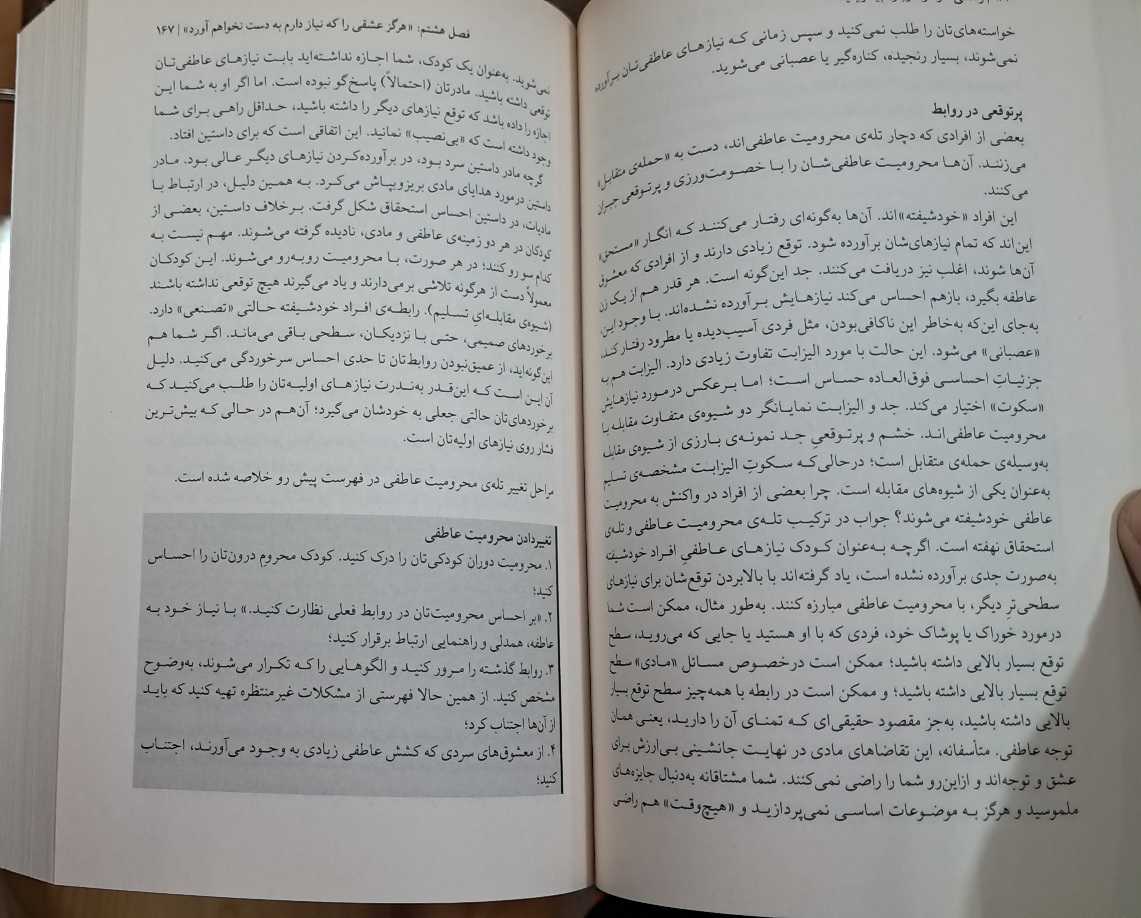 خواسته‌های‌تان را طلب نمی‌کنید و سپس زمانی که نیازهای عاطفی‌تان برآورده
نمی‌شوند، بسیار رنجیده، کناره‌گیر یا عصبانی می‌شوید.
پرتوقعی در روابط
بعضی از افرادی که دچار تله‌ی محرومیت عاطفی‌اند، دست به «حمله‌ی متقابل»
می‌زنند. آن‌ها محرومیت عاطفی‌شان را با خصومت‌ورزی و پرتوقعی جبران
می‌کنند.
این افراد «خودشیفته»‌اند. آن‌ها به‌گونه‌ای رفتار می‌کنند که انگار «مستحق»
این‌اند که تمام نیازهای‌شان برآورده شود. توقع زیادی دارند و از افرادی که معشوق
آن‌ها شوند، اغلب نیز دریافت می‌کنند. جد این‌گونه است. هر قدر هم از یک زن
عاطفه بگیرد، بازهم احساس می‌کند نیازهایش برآورده نشده‌اند. با وجود این
به‌جای این‌که به‌خاطر این ناکافی‌بودن، مثل فردی آسیب‌دیده یا مطرود رفتار کند،
«عصبانی» می‌شود. این حالت با مورد الیزابت تفاوت زیادی دارد. الیزابت هم به
جزئیاتِ احساسی فوق‌العاده حساس است؛ اما برعکس درمورد نیازهایش
«سکوت» اختیار می‌کند. جد و الیزابت نمایانگر دو شیوه‌ی متفاوت مقابله با
محرومیت عاطفی‌اند. خشم و پرتوقعیِ جد نمونه‌ی بارزی از شیوه‌ی مقابله
به‌وسیله‌ی حمله‌ی متقابل است؛ درحالی‌که سکوتِ الیزابت مشخصه‌ی تسلیم
به‌عنوان یکی از شیوه‌های مقابله است. چرا بعضی از افراد در واکنش به محرومیت
عاطفی خودشیفته می‌شوند؟ جواب در ترکیب تله‌ی محرومیت عاطفی و تله‌ی
استحقاق نهفته است. اگرچه به‌عنوان کودک نیازهای عاطفیِ افراد خودشیفته
به‌صورت جدی برآورده نشده است، یاد گرفته‌اند با بالابردن توقع‌شان برای نیازهای
سطحی‌ترِ دیگر، با محرومیت عاطفی مبارزه کنند. به‌طور مثال، ممکن است شما
درمورد خوراک یا پوشاک خود، فردی که با او هستید یا جایی که می‌روید، سطح
توقع بسیار بالایی داشته باشید؛ ممکن است درخصوص مسائل «مادی» سطح
توقع بسیار بالایی داشته باشید؛ و ممکن است در رابطه با همه‌چیز سطح توقع بسیار
بالایی داشته باشید، به‌جز مقصود حقیقی‌ای که تمنای آن را دارید، یعنی همان
توجه عاطفی. متأسفانه، این تقاضاهای مادی در نهایت جانشینی بی‌ارزش برای
عشق و توجه‌اند و ازاین‌رو شما را راضی نمی‌کنند. شما مشتاقانه به‌دنبال جایزه‌های
ملموسید و هرگز به موضوعات اساسی نمی‌پردازید و «هیچ‌وقت» هم راضی
فصل هشتم: «هرگز عشقی را که نیاز دارم به دست نخواهم آورد» | ۱۶۷
نمی‌شوید. به‌عنوان یک کودک، شما اجازه نداشته‌اید بابت نیازهای عاطفی‌تان
توقعی داشته باشید. مادرتان (احتمالاً) پاسخ‌گو نبوده است. اما اگر او به شما این
اجازه را داده باشد که توقع نیازهای دیگر را داشته باشید، حداقل راهی برای شما
وجود داشته است که «بی‌نصیب» نمانید. این اتفاقی است که برای داستین افتاد.
گرچه مادر داستین سرد بود، در برآورده‌کردن نیازهای دیگر عالی بود. مادر
داستین درمورد هدایای مادی بریزوبپاش می‌کرد. به همین دلیل، در ارتباط با
مادیات، در داستین احساس استحقاق شکل گرفت. برخلاف داستین، بعضی از
کودکان در هر دو زمینه‌ی عاطفی و مادی، نادیده گرفته می‌شوند. مهم نیست به
کدام سو رو کنند؛ در هر صورت، با محرومیت روبه‌رو می‌شوند. این کودکان
معمولاً دست از هرگونه تلاشی برمی‌دارند و یاد می‌گیرند هیچ توقعی نداشته باشند
(شیوه‌ی مقابله‌ایِ تسلیم). رابطه‌ی افراد خودشیفته حالتی «تصنعی» دارد.
برخوردهای صمیمی، حتی با نزدیکان، سطحی باقی می‌ماند. اگر شما هم
این‌گونه‌اید، از عمیق‌نبودن روابط‌تان تا حدی احساس سرخوردگی می‌کنید. دلیل
آن این است که این‌قدر به‌ندرت نیازهای اولیه‌تان را طلب می‌کنید که
برخوردهای‌تان حالتی جعلی به خودشان می‌گیرد؛ آن‌هم در حالی که بیش‌ترین
فشار روی نیازهای اولیه‌تان است.
مراحل تغییر تله‌ی محرومیت عاطفی در فهرست پیش رو خلاصه شده است.
تغییردادن محرومیت عاطفی
۱. محرومیت دوران کودکی‌تان را درک کنید. کودک محرومِ درون‌تان را احساس
کنید؛
۲. «بر احساس محرومیت‌تان در روابط فعلی نظارت کنید.» با نیاز خود به
عاطفه، همدلی و راهنمایی ارتباط برقرار کنید؛
۳. روابط گذشته را مرور کنید و الگوهایی را که تکرار می‌شوند، به‌وضوح
مشخص کنید. از همین حالا فهرستی از مشکلات غیرمنتظره تهیه کنید که باید
از آن‌ها اجتناب کرد؛
۴. از معشوق‌های سردی که کشش عاطفی زیادی به وجود می‌آورند، اجتناب
کنید؛